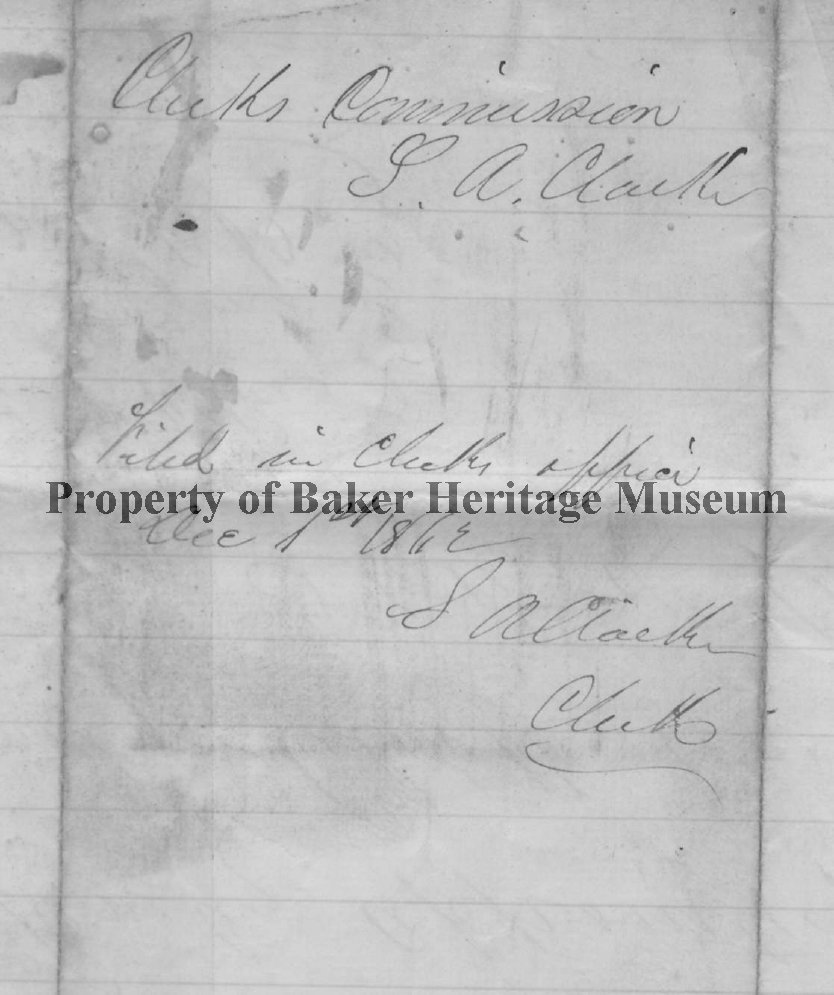 Clerks Commission
S. A. Clarke
Filed in Clerks office
Property of Baker Heritage Museum
Dec 1st 1862
S A Clarke
Clerk